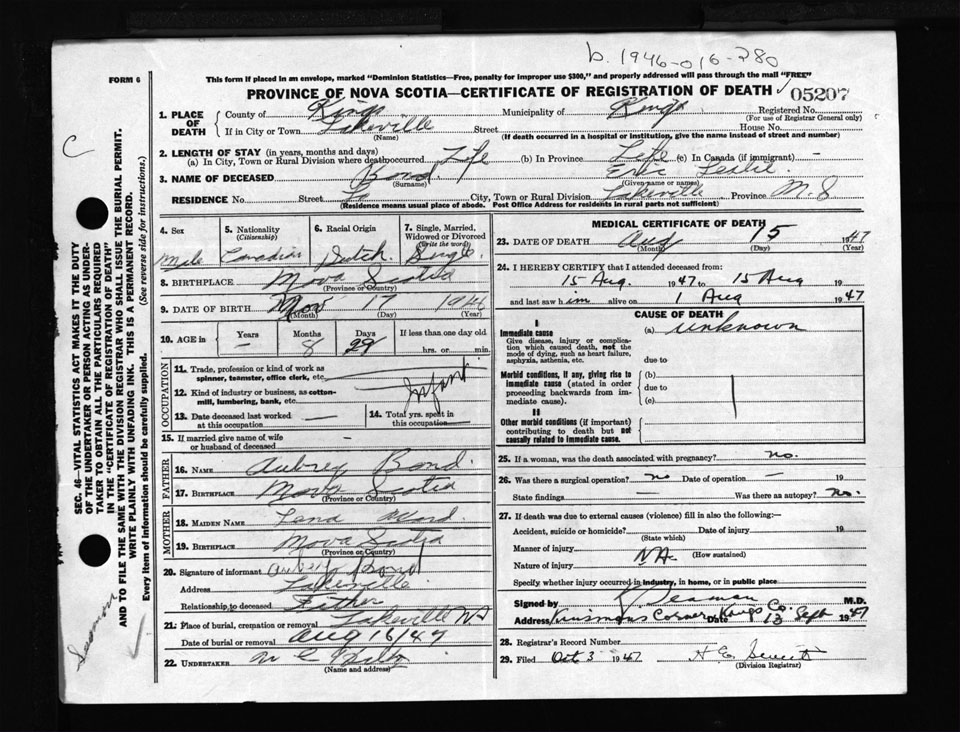 b. 1946-016-280
FORM 6
This form if placed in an envelope, marked "Dominion Statistics—Free, penalty for improper use $300," and properly addressed will pass through the mail "FREE"
PROVINCE OF NOVA SCOTIA—CERTIFICATE OF REGISTRATION OF DEATH
05207
1. PLACE OF DEATH
County of Kings Municipality of Kings Registered No.
(For use of Registrar General only)
If in City or Town Lakeville Street House No.
(Name) (If death occurred in a hospital or institution, give the name instead of street and number)
2. LENGTH OF STAY (in years, months and days)
(a) In City, Town or Rural Division where death occurred Life (b) In Province Life (c) In Canada (if immigrant) —
3. NAME OF DECEASED Bond Eric Leslie
(Surname) (Given name or names)
RESIDENCE No. Street City, Town or Rural Division Lakeville Province N.S
(Residence means usual place of abode. Post Office Address for residents in rural parts not sufficient)
4. Sex Male
5. Nationality (Citizenship) Canadian
6. Racial Origin Dutch
7. Single, Married, Widowed or Divorced (Write the word) Single
8. BIRTHPLACE Nova Scotia
(Province or Country)
9. DATE OF BIRTH Nov 17 1946
(Month) (Day) (Year)
10. AGE in
Years — Months 8 Days 29
If less than one day old
hrs. or min.
OCCUPATION
11. Trade, profession or kind of work as spinner, teamster, office clerk, etc.
Infant
12. Kind of industry or business, as cotton-mill, lumbering, bank, etc.
13. Date deceased last worked at this occupation —
14. Total yrs. spent in this occupation —
15. If married give name of wife or husband of deceased —
FATHER
16. NAME Aubrey Bond
17. BIRTHPLACE Nova Scotia
(Province or Country)
MOTHER
18. MAIDEN NAME Lena Ward
19. BIRTHPLACE Nova Scotia
(Province or Country)
20. Signature of informant Aubrey Bond
Address Lakeville
Relationship to deceased Father
21. Place of burial, cremation or removal Lakeville NS
Date of burial or removal Aug 16/47
22. UNDERTAKER
(Name and address)
MEDICAL CERTIFICATE OF DEATH
23. DATE OF DEATH Aug 15 1947
(Month) (Day) (Year)
24. I HEREBY CERTIFY that I attended deceased from:
15 Aug. 1947 to 15 Aug 19
and last saw him alive on 1 Aug 1947
CAUSE OF DEATH
I
Immediate cause (a) unknown
Give disease, injury or complication which caused death, not the mode of dying, such as heart failure, asphyxia, asthenia, etc.
due to
Morbid conditions, if any, giving rise to immediate cause (stated in order proceeding backwards from immediate cause).
(b)
due to
(c)
II
Other morbid conditions (if important) contributing to death but not causally related to immediate cause.
25. If a woman, was the death associated with pregnancy? no.
26. Was there a surgical operation? no Date of operation — 19
State findings — Was there an autopsy? no.
27. If death was due to external causes (violence) fill in also the following:—
Accident, suicide or homicide? Date of injury 19
(State which)
Manner of injury NA
(How sustained)
Nature of injury
Specify whether injury occurred in industry, in home, or in public place
Signed by Seaman M.D.
Address Kinsmans Corner, Kings Co. Date 13 Sept 1947
28. Registrar's Record Number
29. Filed Oct 3 1947
(Division Registrar)
SEC. 46—VITAL STATISTICS ACT MAKES IT THE DUTY
OF THE UNDERTAKER OR PERSON ACTING AS UNDER-
TAKER TO OBTAIN ALL THE PARTICULARS REQUIRED
IN THE "CERTIFICATE OF REGISTRATION OF DEATH"
AND TO FILE THE SAME WITH THE DIVISION REGISTRAR WHO SHALL ISSUE THE BURIAL PERMIT.
WRITE PLAINLY WITH UNFADING INK. THIS IS A PERMANENT RECORD.
Every item of information should be carefully supplied. (See reverse side for instructions.)
Seaman